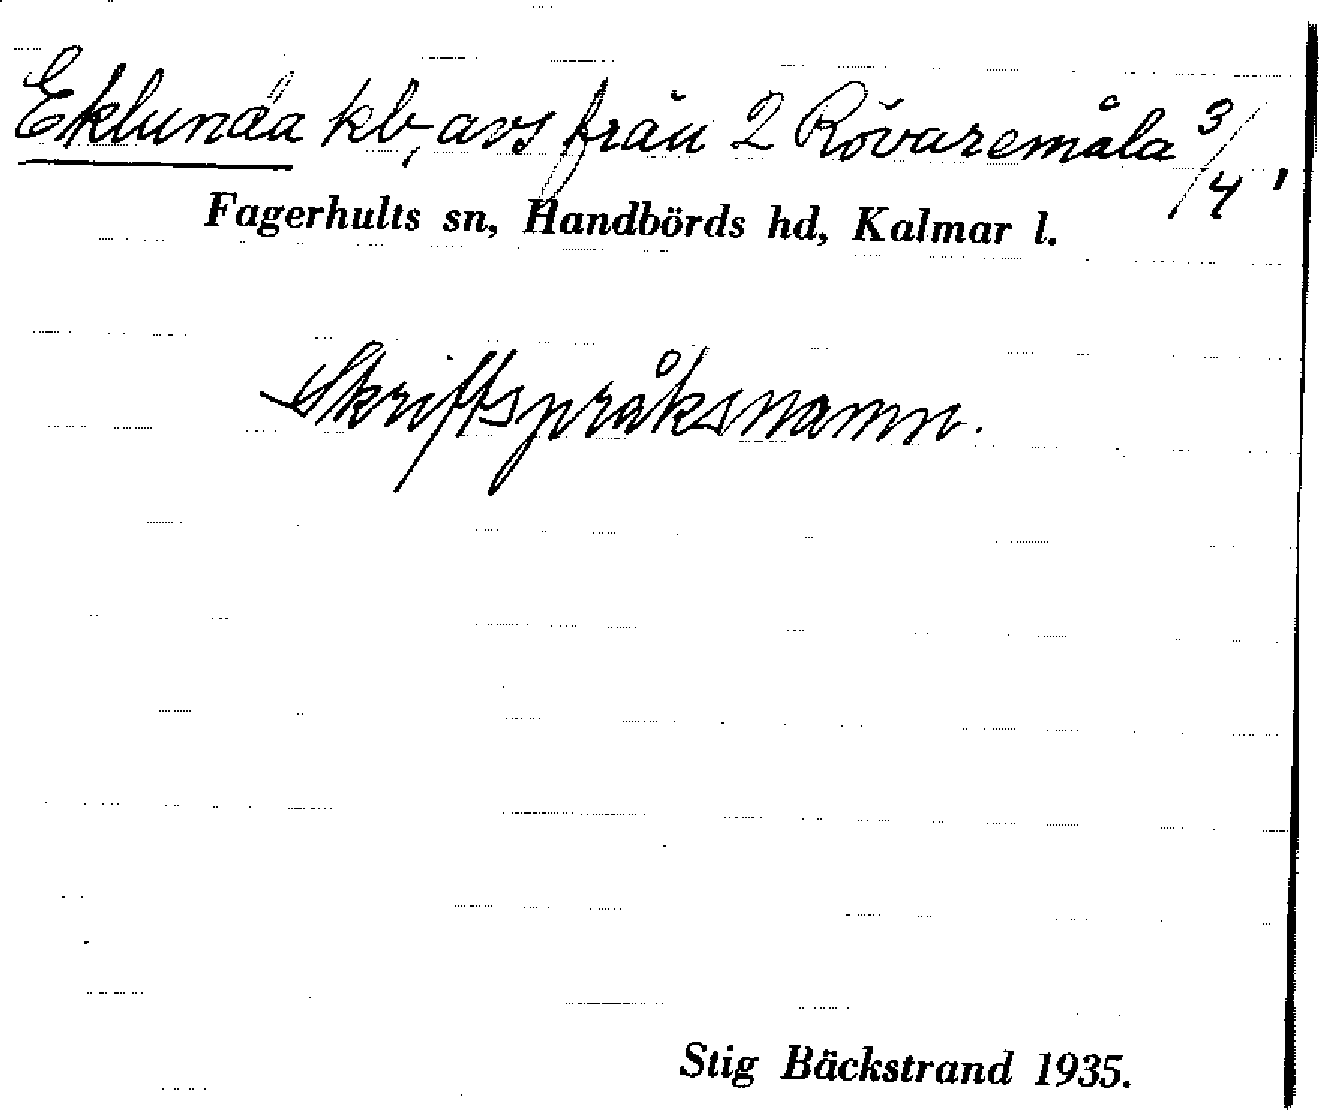 Eklunda kb, avs från 2 Rövaremåla 3/4 '
Fagerhults sn, Handbörds hd, Kalmar l.
Skriftspråksnamn.
Stig Bäckstrand 1935.